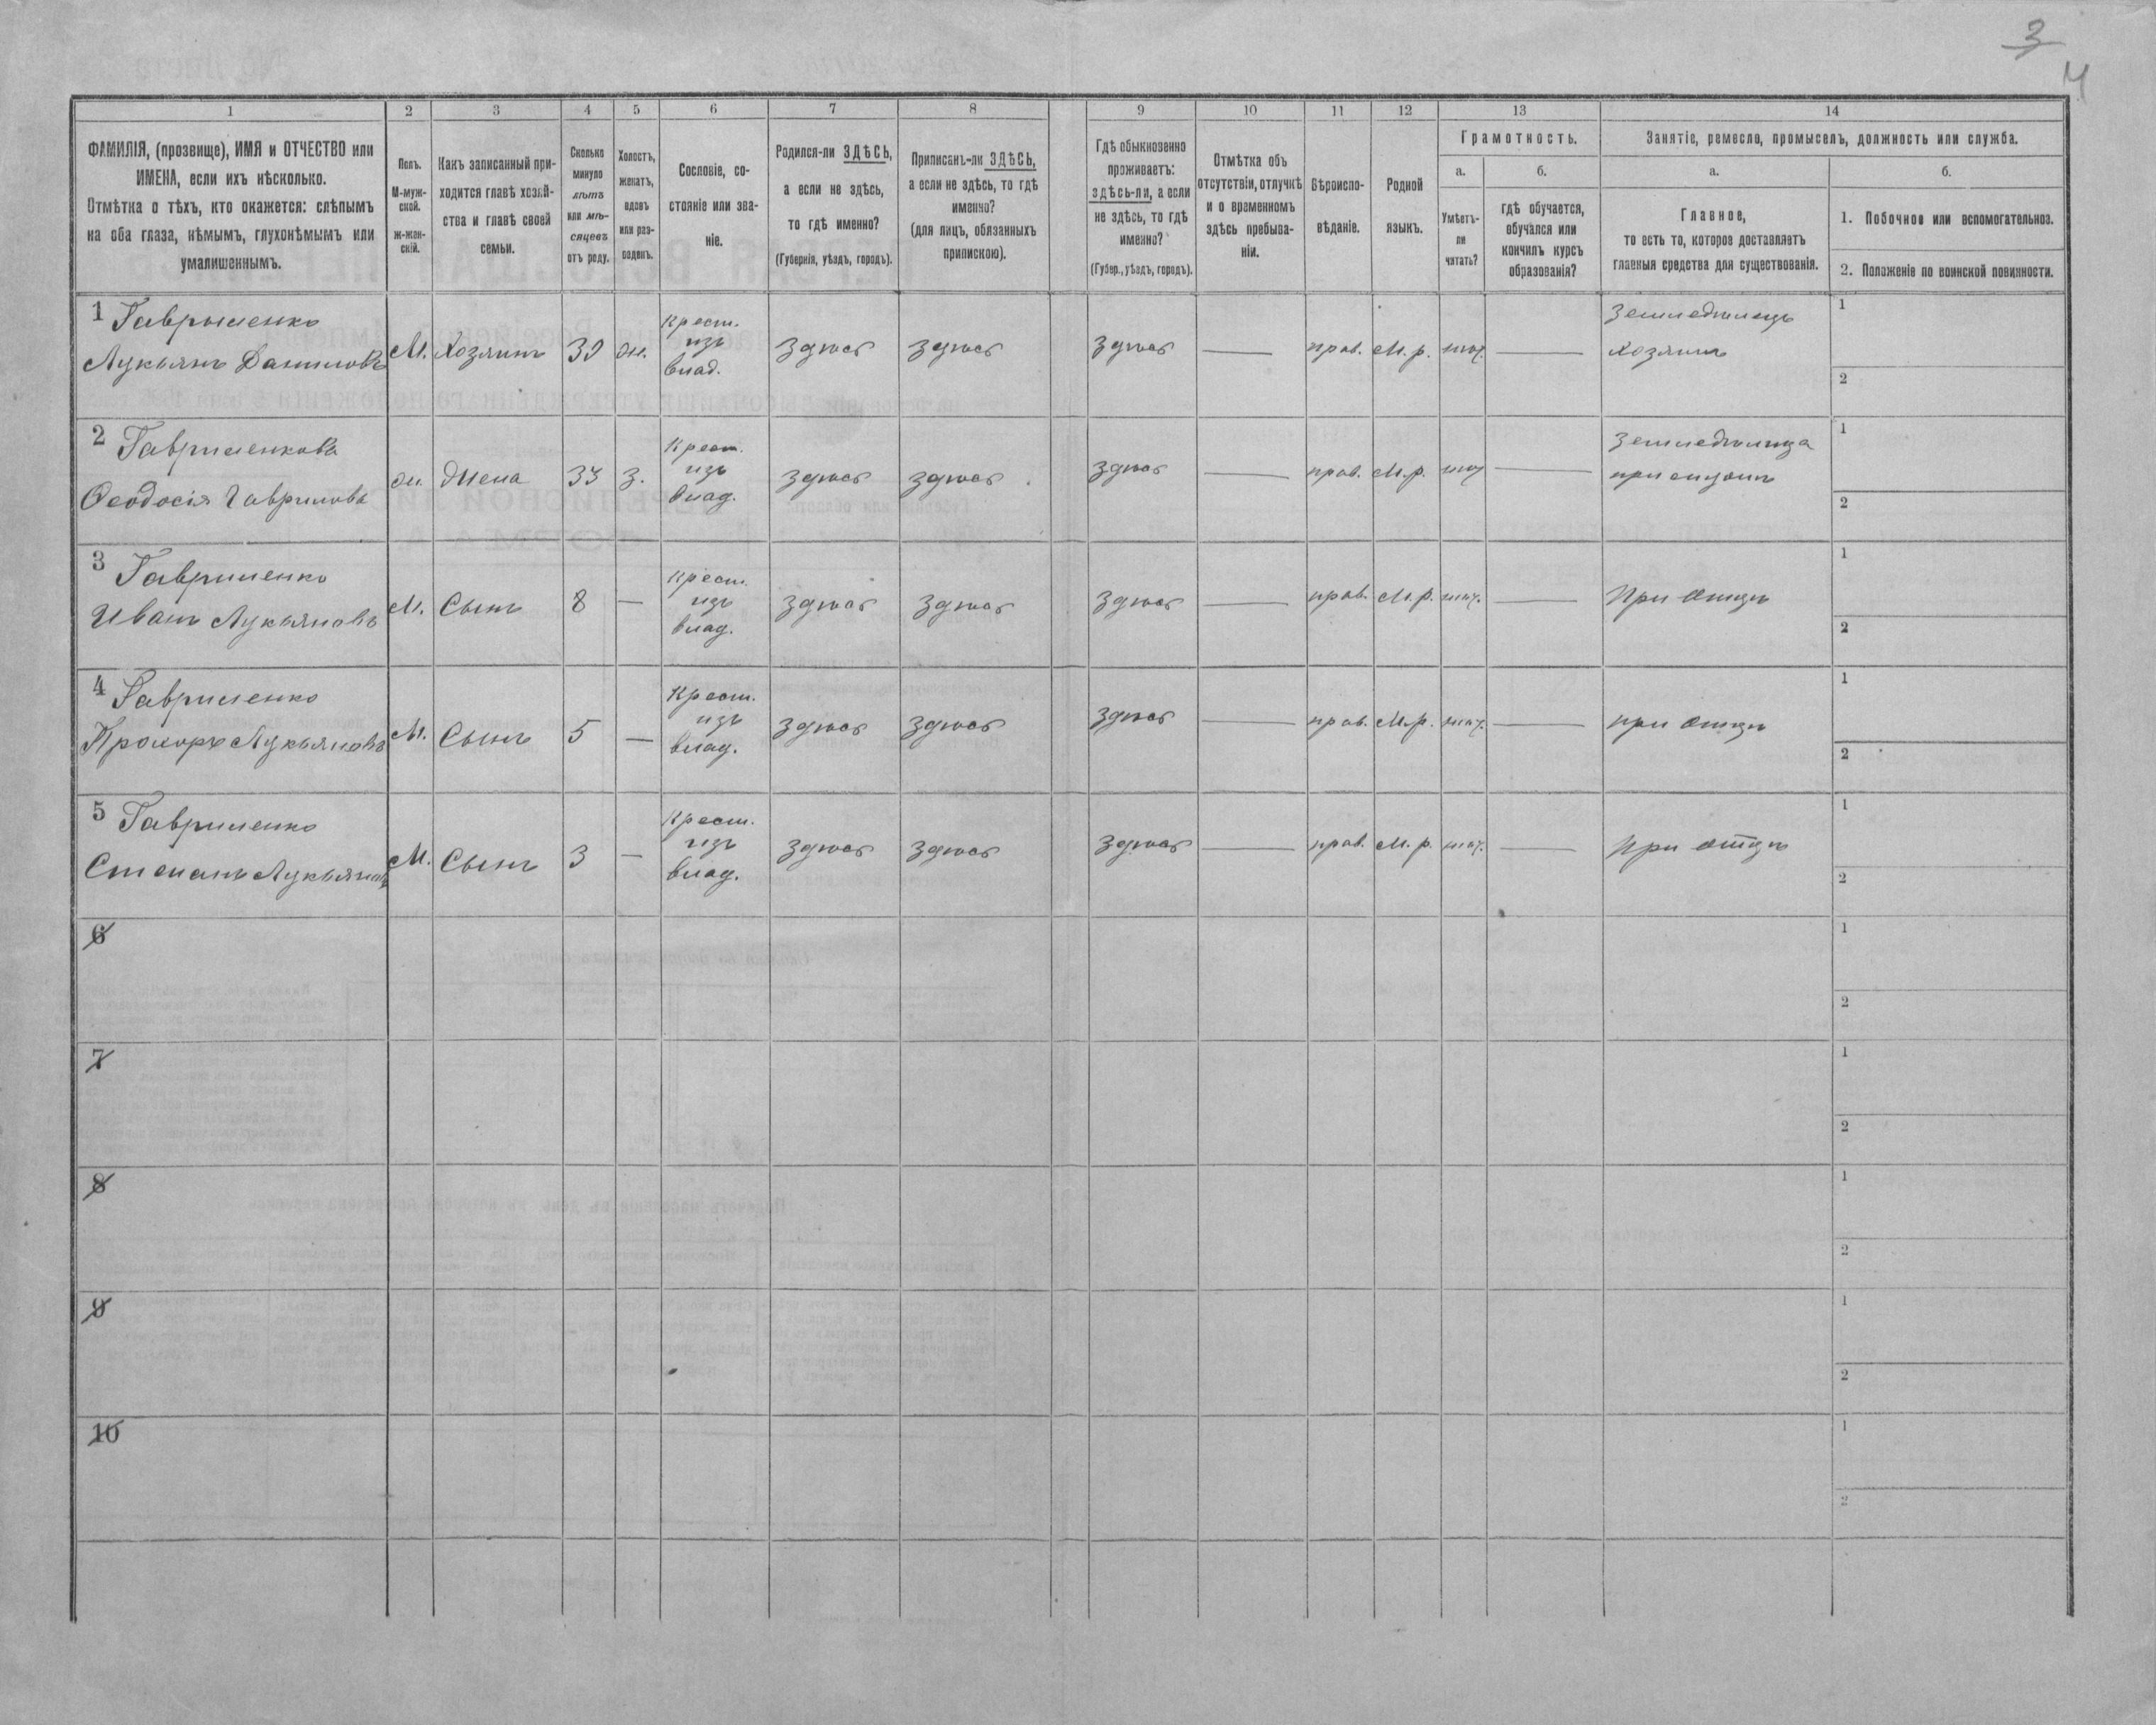 3
4
1 2 3 4 5 6 7 8 9 10 11 12 13 14
ФАМИЛІЯ, (прозвище), ИМЯ и ОТЧЕСТВО или
ИМЕНА, если ихъ нѣсколько.
Отмѣтка о тѣхъ, кто окажется: слѣпымъ
на оба глаза, нѣмымъ, глухонѣмымъ или
умалишеннымъ.
Полъ.
М-муж-
ской.
ж-жен-
скій.
Какъ записанный при-
ходится главѣ хозяй-
ства и главѣ своей
семьи.
Сколько
минуло
лѣтъ
или мѣ-
сяцевъ
отъ роду.
Холостъ,
женатъ,
вдовъ
или раз-
веденъ.
Сословіе, со-
стояніе или зва-
ніе.
Родился-ли ЗДѢСЬ,
а если не здѣсь,
то гдѣ именно?
(Губернія, уѣздъ, городъ).
Приписанъ-ли ЗДѢСЬ,
а если не здѣсь, то гдѣ
именно?
(для лицъ, обязанныхъ
припискою).
Гдѣ обыкновенно
проживаетъ:
здѣсь-ли, а если
не здѣсь, то гдѣ
именно?
(Губер., уѣздъ, городъ).
Отмѣтка объ
отсутствіи, отлучкѣ
и о временномъ
здѣсь пребыва-
ніи.
Вѣроиспо-
вѣданіе.
Родной
языкъ.
Грамотность.
а.
Умѣетъ-
ли
читать?
б.
гдѣ обучается,
обучался или
кончилъ курсъ
образованія?
Занятіе, ремесло, промыселъ, должность или служба.
а.
Главное,
то есть то, которое доставляетъ
главныя средства для существованія.
б.
1. Побочное или вспомогательное.
2. Положеніе по воинской повинности.
1 Гавриленко
Лукьянъ Даниловъ
М. Хозяинъ 39 ж.
Крест.
изъ
влад.
здѣсь здѣсь здѣсь — прав. М. р. —
Земледѣлецъ
хозяинъ
1
2
2 Гавриленкова
Ѳеодосія Гаврилова
ж. Жена 33 з.
Крест.
изъ
влад.
здѣсь здѣсь здѣсь — прав. М. р. —
Земледѣлица
при мужѣ
1
2
3 Гавриленко
Иванъ Лукьяновъ
М. Сынъ 8 —
Крест.
изъ
влад.
здѣсь здѣсь здѣсь — прав. М. р. —
При отцѣ
1
2
4 Гавриленко
Прохоръ Лукьяновъ
М. Сынъ 5 —
Крест.
изъ
влад.
здѣсь здѣсь здѣсь — прав. М. р. —
при отцѣ
1
2
5 Гавриленко
Степанъ Лукьяновъ
М. Сынъ 3 —
Крест.
изъ
влад.
здѣсь здѣсь здѣсь — прав. М. р. —
При отцѣ
1
2
6
1
2
7
1
2
8
1
2
9
1
2
10
1
2